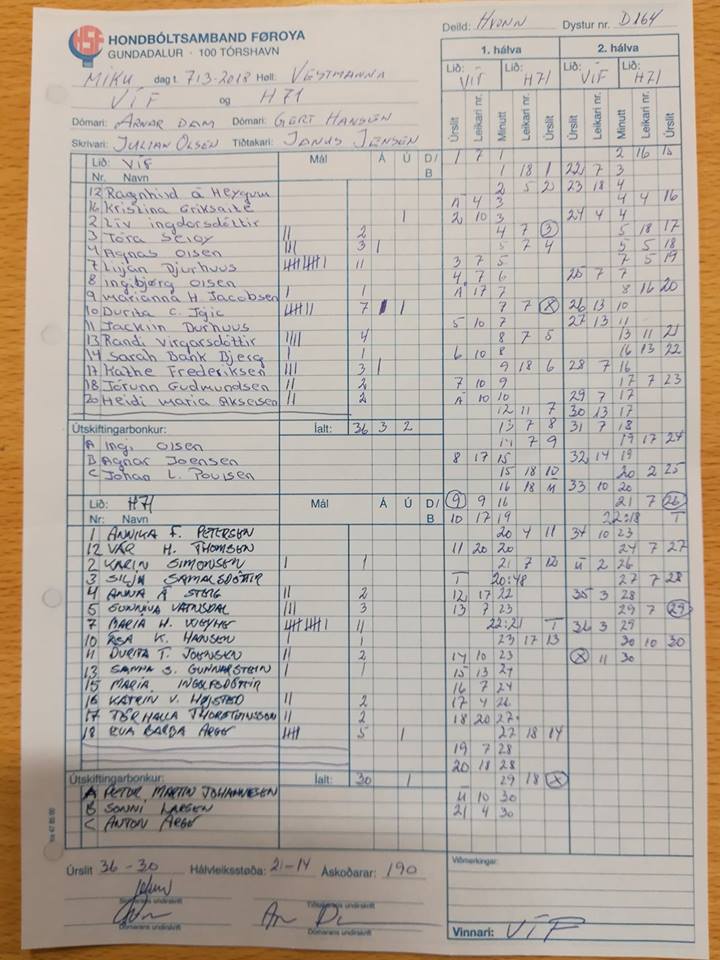 HONDBÓLTSAMBAND FØROYA
GUNDADALUR · 100 TÓRSHAVN
Deild: KVONN Dystur nr. D164
MIKU dag t. 7/3-2018 Høll: VESTMANNA
VÍF og H71
Dómari: ARNAR DAM Dómari: GERT HANSEN
Skrivari: JULIAN OLSEN Tíðtakari: JANUS JENSEN
Lið: VÍF Mál Á Ú D/B
Nr. Navn
12 Ragnhild á Heygum
16 Kristina
2 Lív Ingdorsdóttir 1
3 Tóra II 2
4 Agnas Olsen III 3 1
7 Lijan Djurhuus 11
8 Ingibjørg Olsen
9 Marianna H Jacobsen I 1
10 Durita C. 7 1
11 Durhuus
13 Randi Virgarsdóttir IIII 4
14 Sarah Bank Bjerg I 1
17 Kathe Frederiksen III 3 1
18 Jórunn Gudmundsen II 2
20 Heidi Maria Akselsen II 2
Útskiftingarbonkur: Íalt: 36 3 2
A Ing. Olsen
B Agnar Joensen
C Johan L. Poulsen
Lið: H71 Mál Á Ú D/B
Nr: Navn
1 ANNIKA F. PETERSEN
12 VÁR H. THOMSEN
2 KARIN SIMONSEN I 1
3 SILJA SAMALSDÓTTIR
4 ANNA Á STEIG II 2
5 GUNNVÁ VATNSDAL III 3
7 MARIA H. WEYHE 11
10 RSA K. HANSEN I 1
11 DURITA T. JOENSEN II 2
13 SANNA S. GUNNARSTEIN I 1
15 MARIA INGOLFSDÓTTIR
16 KATRIN V. HØJSTED II 2
17 TÓRHALLA THORSTEINSSON II 2
18 RUA BARBA ARGE 5 1
Útskiftingarbonkur: Íalt: 30 1
A PETUR MARTIN JOHANNESEN
B SONNI LARSEN
C ANTON ARGE
Úrslit 36 - 30 Hálvleiksstøða: 21-14 Áskoðarar: 190
Dómarans undirskrift
Dómarans undirskrift
1. hálva 2. hálva
Lið: VÍF Lið: H71 Lið: VÍF Lið: H71
Úrslit Leikari nr. Minutt Leikari nr. Úrslit Úrslit Leikari nr. Minutt Leikari nr. Úrslit
1 7 1 2 16 15
1 18 1 22 7 3
2 5 2 23 18 4
Á 4 3 4 4 16
2 10 3 24 4 4
4 7 3 5 18 17
5 7 4 5 5 18
3 7 5 7 5 19
4 7 6 25 7 7
Á 17 7 8 16 20
7 7 X 26 13 10
5 10 7 27 13 11
8 7 5 13 11 21
6 10 8 16 13 22
9 18 6 28 7 16
7 10 9 17 7 23
Á 10 10 29 7 17
12 11 7 30 13 17
13 7 8 31 7 18
14 7 9 19 17 24
8 17 15 32 14 19
15 18 10 20 2 25
16 18 Ú 33 10 20
9 9 16 21 7 26
10 17 19 22:18 T
20 4 11 34 10 23
11 20 20 24 7 27
21 7 12 Ú 2 26
T 20:48 27 7 28
12 17 22 35 3 28
13 7 23 29 7 29
22:21 T 36 3 29
23 17 13 30 10 30
14 10 23 X 11 30
15 13 24
16 7 24
17 4 26
18 20 27
27 18 14
19 7 28
20 18 28
29 18 X
Ú 10 30
21 4 30
Viðmerkingar:
Vinnari: VÍF